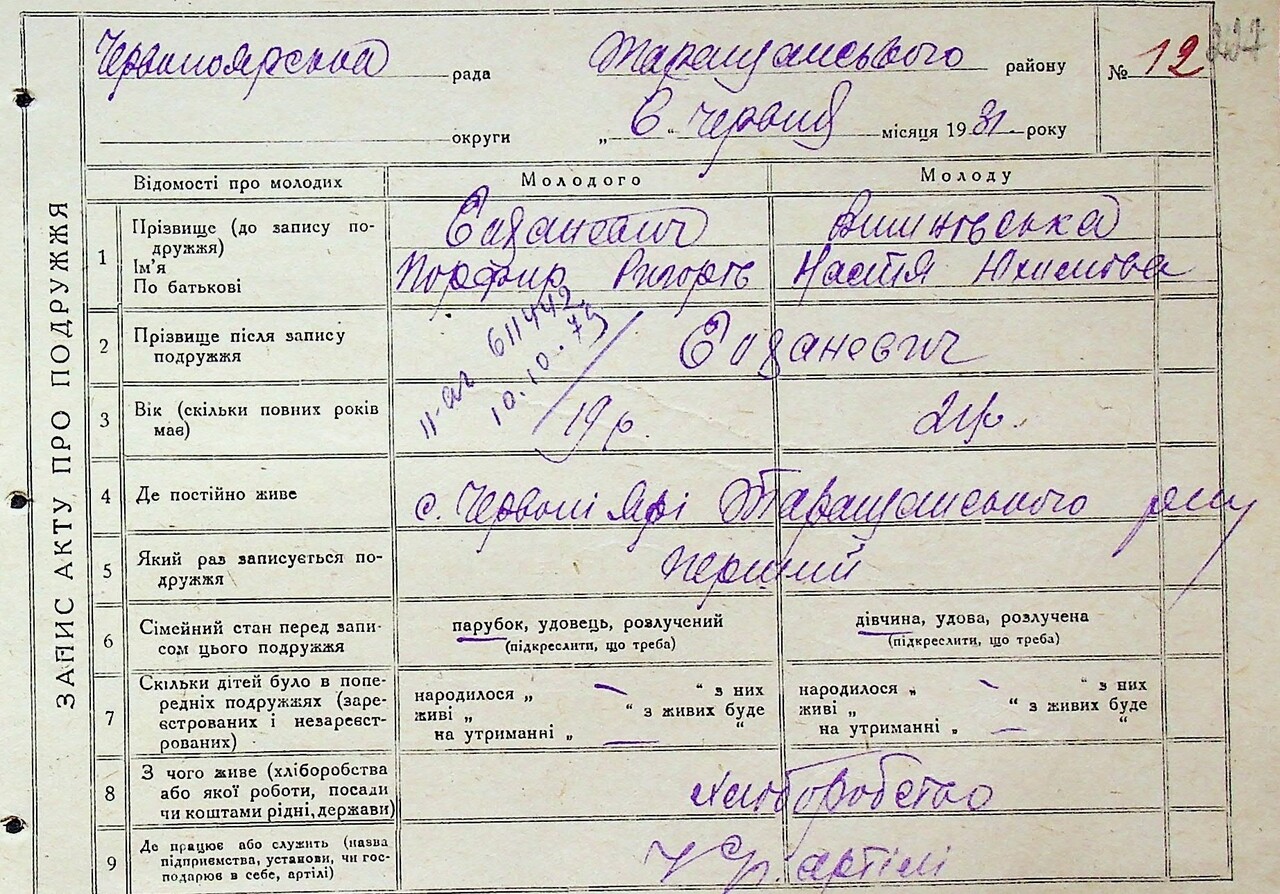 ЗАПИС АКТУ ПРО ПОДРУЖЖЯ
Червоноярська рада Таращанського району № 12 227
округи „ 6 “ Червня місяця 1931 року
Відомості про молодих Молодого Молоду
1 Прізвище (до запису по-
дружжя)
Ім'я
По батькові
Порфир Настія
2 Прізвище після запису
подружжя
11-аг 611442
10.10.79
3 Вік (скільки повних років
має)
19 р. 21 р.
4 Де постійно живе с. Червоні Ярі Таращанського р-ну
5 Який раз записується по-
дружжя
перший
6 Сімейний стан перед запи-
сом цього подружжя
парубок, удовець, розлучений
(підкреслити, що треба)
дівчина, удова, розлучена
(підкреслити, що треба)
7 Скільки дітей було в попе-
редніх подружжях (заре-
єстрованих і незареєст-
рованих)
народилося „ — “ з них
живі „ “ з живих буде
на утриманні „ — “
народилося „ — “ з них
живі „ “ з живих буде
на утриманні „ — “
8 З чого живе (хліборобства
або якої роботи, посади
чи коштами рідні, держави)
хліборобство
9 Де працює або служить (назва
підприємства, установи, чи гос-
подарює в себе, артілі)
артілі